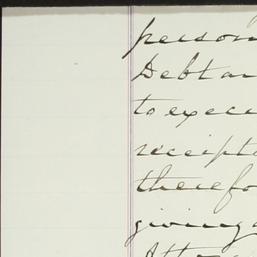 person
Debt an
to execu
receipts
therefo
giving a